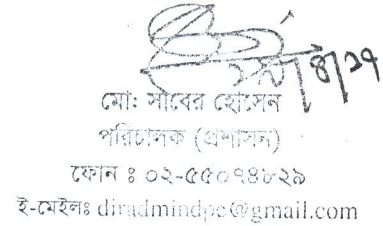 মোঃ সাবের হোসেন
পরিচালক (প্রশাসন)
ফোন ঃ ০২-৫৫০৭৪৮২৯
ই-মেইলঃ diradmindpe@gmail.com